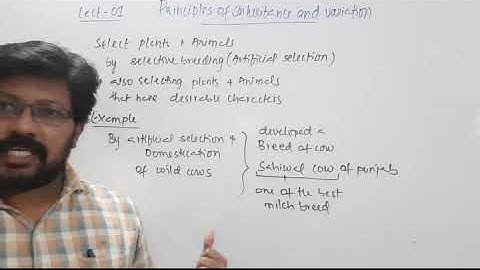 Lect-01
Principles of Inhoritance and variation
Select plants & Animals
by selective breeding (Artificial selection)
also selecting plants & Animals
that have desirable characters
Exomple
By artificial selection &
Domestication
of wild cows
developed a
Breed of cow
Sahiwal cow of punjab
one of the best
milch breed